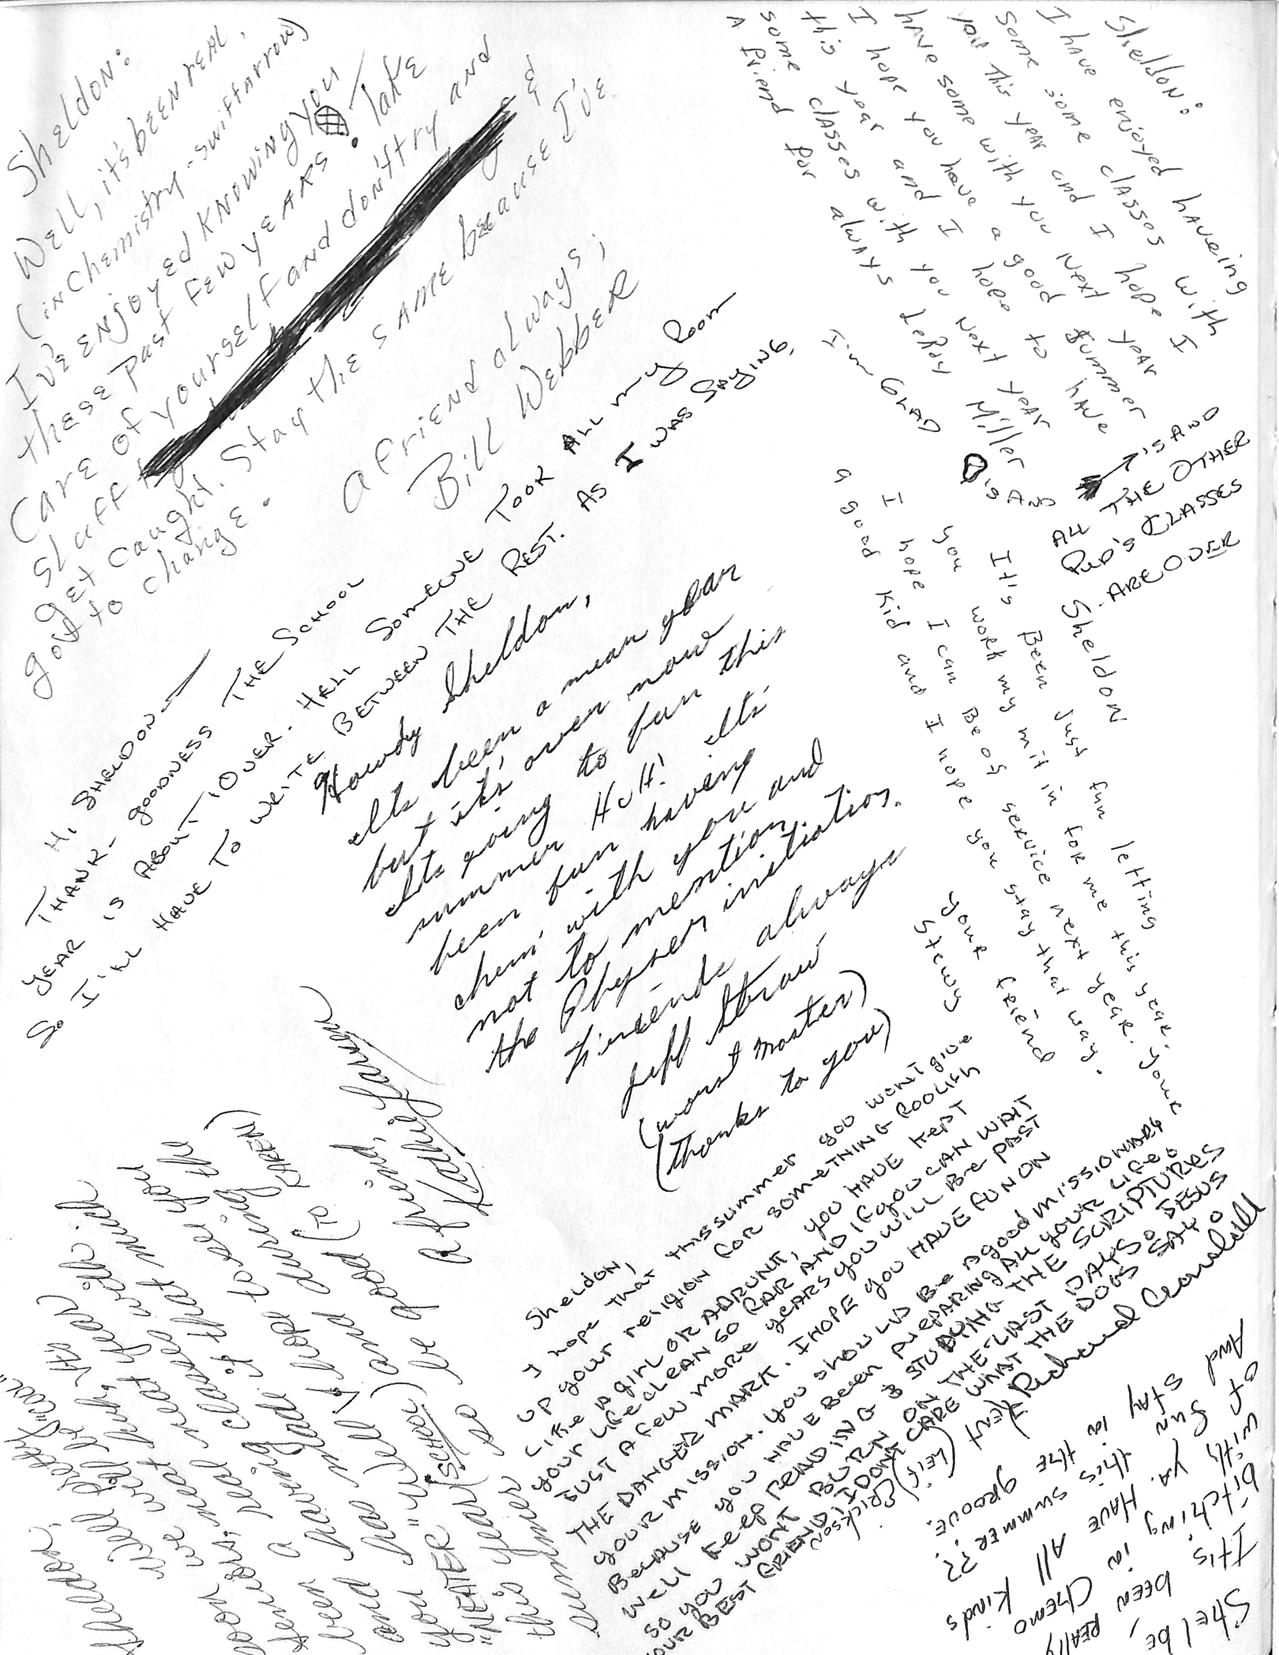 Sheldon:
Well, it's been real,
(in chemistry - swiftarrow)
I've enjoyed knowing you
these past few years. Take
care of yourself and don't try and
stuff
get caught. Stay the same because I've
got to change.
a friend always,
Bill Webber
Sheldon:
I have enjoyed haveing
some some classes with
you this year and I hope I
have some with you next year
I hope you have a good summer
this year and I hope to have
some classes with you next year
A friend for always LeRoy Miller
Hi, Sheldon-
Thank-goodness the school
year is about over. Hell someone took all my room
So I'll have to write between the rest. As I was saying,
I'm glad
is and
all the other
classes
are over
Howdy Sheldon,
Its been a mean year
but its' over now
Its going to fun this
summer Heh! Its'
been fun having
chem with you and
not to mention
the Physer initiation.
friends always
Jeff Straw
(worst master)
(thanks to you)
Sheldon
It's Been just fun letting
you work my mit in for me this year. Your
I hope I can be of service next year.
a good kid and I hope you stay that way.
your friend
Stewy
Sheldon,
Well pretty
soon we will be "
seniors, neat huh, it's
been a real neat year
and having classes with
you has made it that much
"neater". Well I hope to see you
this year (school) and during the
summer so be good (to Karen)
a friend,
Kathie Larson
Sheldon,
I hope that this summer you won't give
up your religion for something foolish
like a girl or a drunt, you have kept
your life clean so far and if you can wait
just a few more years you will be past
the danger mark. I hope you have fun on
your mission. You should be a good missionary
because you have been preparing all your life.
Well keep reading & studying the scriptures
so you wont burn on the last days. Jesus
your best friend, I dont care what the dogs say.
(Leif) (Erickson)
Richard Cranshill
Shelbe,
It's really been
bitching in Chemo
with ya. Have all kinds
of fun this summer??
And stay in the groove.